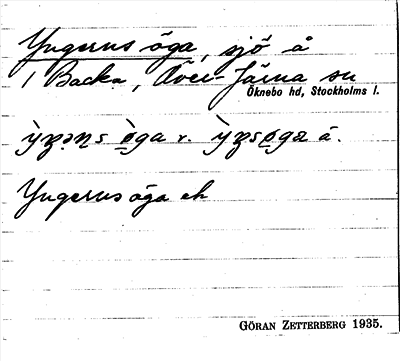 Yngerns öga, sjö å
1 Backa, Över-Järna sn
Öknebo hd, Stockholms l.
öga v. á.
Yngerns öga ek
GÖRAN ZETTERBERG 1935.